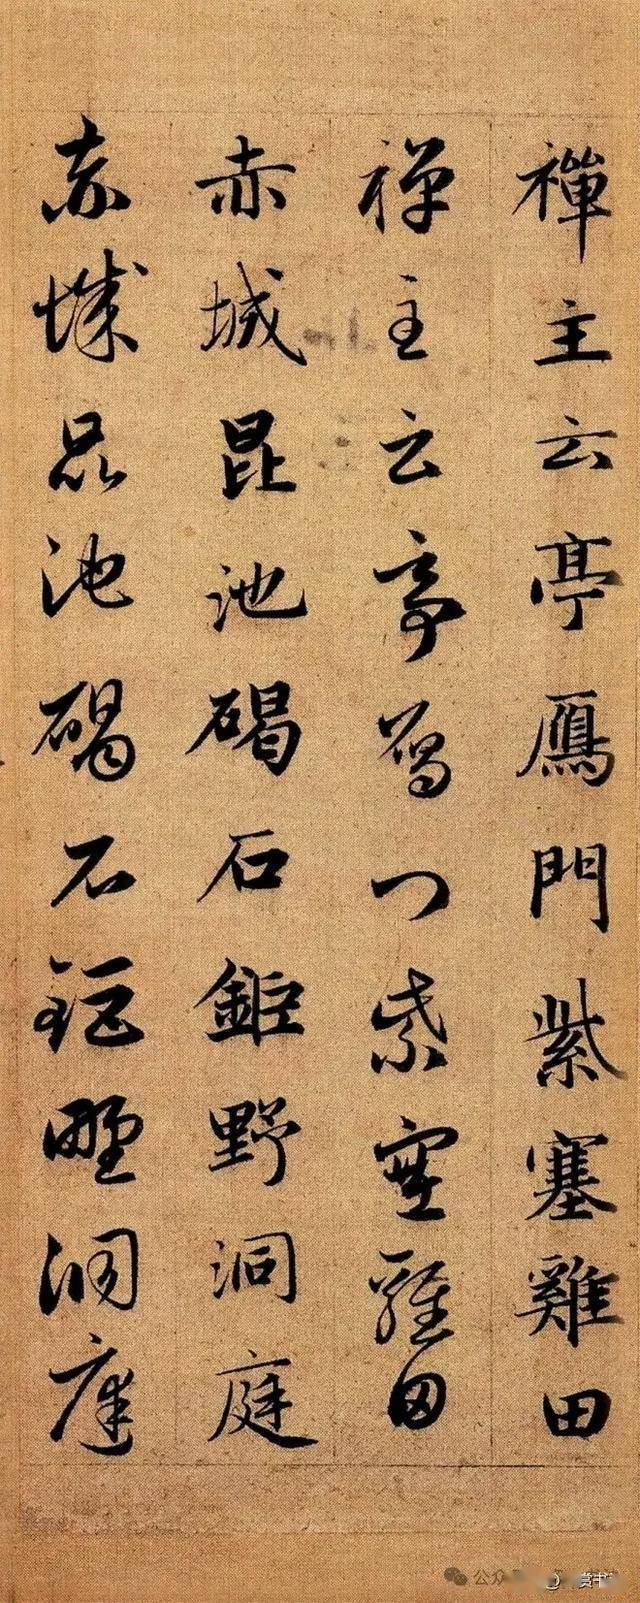 禪主云亭鴈門紫塞雞田
禪主云亭鴈門紫塞雞田
赤城昆池碣石鉅野洞庭
赤城昆池碣石鉅野洞庭
公众 赏书